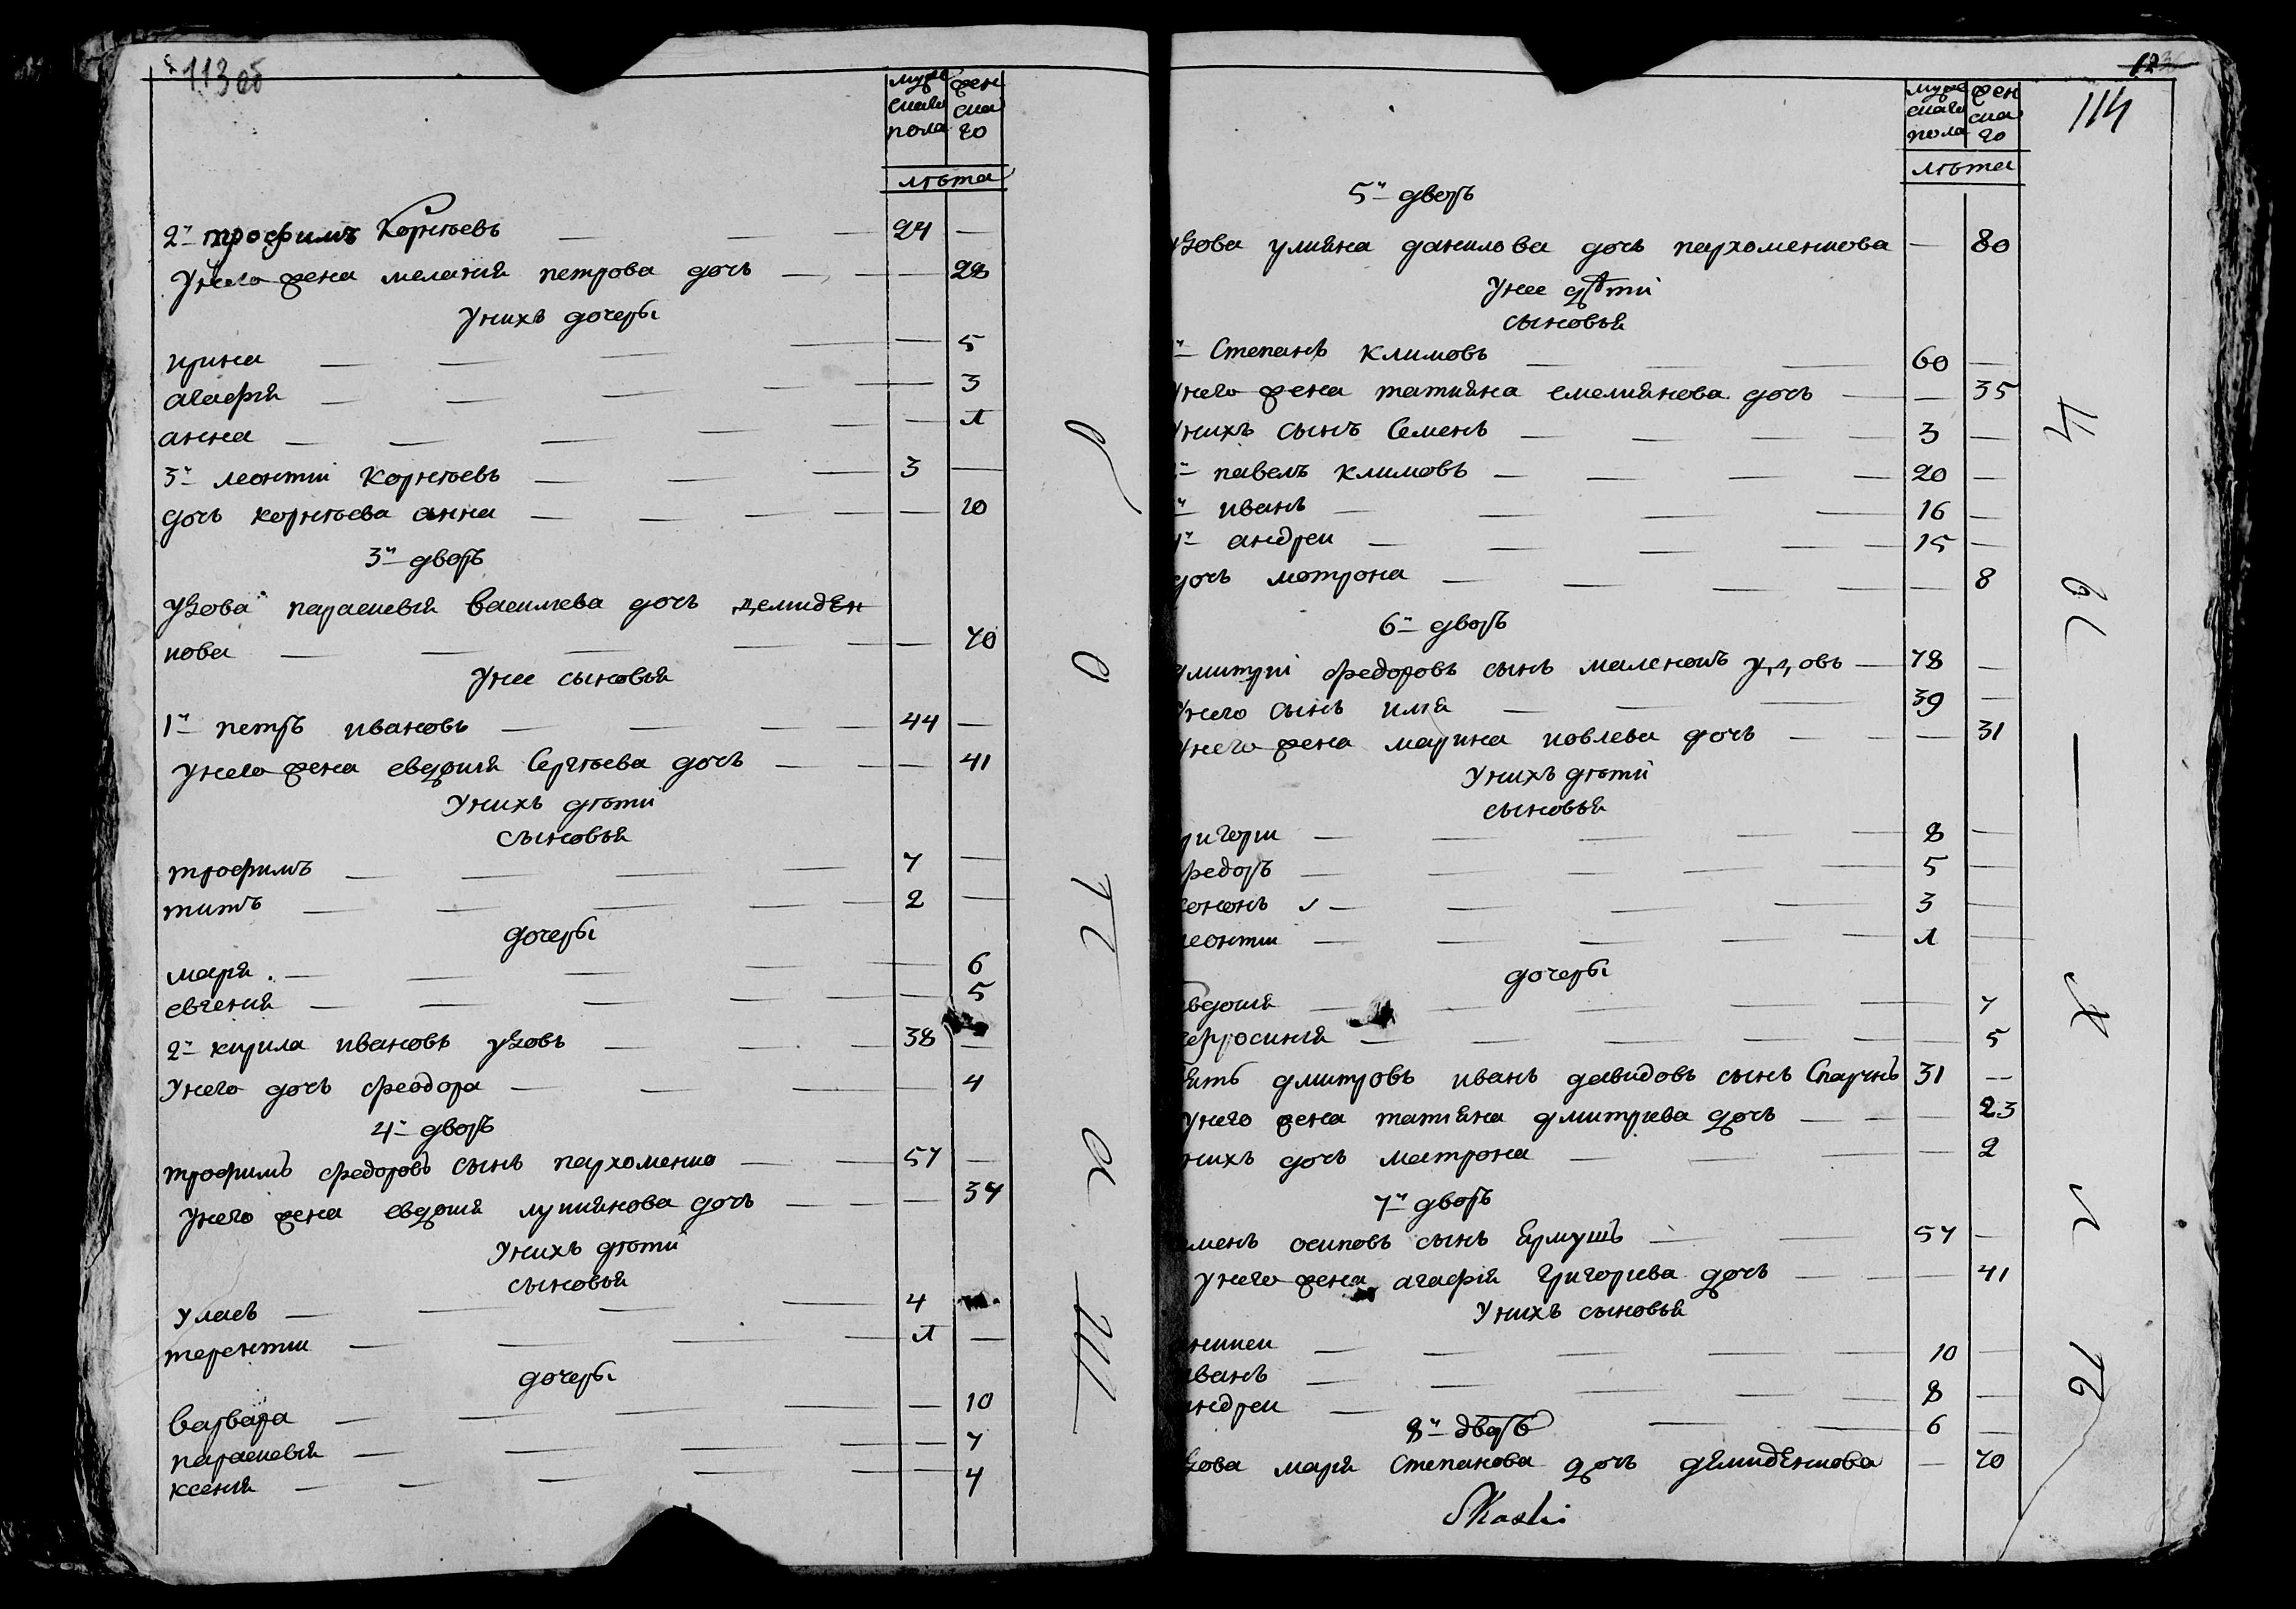 113 об
муже скаго пола | жен ска го
лѣта
2й трофимъ Корнѣевъ — 24 —
Унего жена мелания петрова дочъ — — 28
Унихъ дочери
ирина — — 5
агафия — — 3
анна — — 1
3й леонтии Корнѣевъ — 3 —
дочъ корнѣева анна — — 20
3й дворъ
Удова параскевия василиева дочъ демиден
кова — — 70
Унее сыновья
1й петръ ивановъ — 44 —
Унего жена евдокия Сергѣева дочъ — — 41
Унихъ дѣти
сыновья
трофимъ — 7 —
титъ — 2 —
дочери
мария — — 6
евгения — — 5
2й кирила ивановъ удовъ — 38 —
Унего дочъ феодора — — 4
4й дворъ
трофимъ федоровъ сынъ пархоменко — 57 —
Унего жена евдокия лукиянова дочъ — — 37
Унихъ дѣти
сыновья
Уласъ — 4
терентии — 1 —
дочери
варвара — — 10
параскевия — — 7
ксения — — 4
114
муже скаго пола | жен ска го
лѣта
5й дворъ
Удова улияна данилова дочъ пархоменкова — 80
Унее дѣти
сыновья
Степанъ климовъ — 60 —
Унего жена татияна емелиянова дочъ — — 35
Унихъ сынъ Семенъ — 3 —
павелъ климовъ — 20 —
иванъ — 16 —
андреи — 15 —
дочъ мотрона — — 8
6й дворъ
дмитрии федоровъ сынъ удовъ — 78 —
Унего сынъ илия — 39 —
Унего жена марина иовлева дочъ — — 31
Унихъ дѣти
сыновья
григории — 8 —
федоръ — 5 —
кононъ — 3 —
леонтии — 1 —
дочери
евдокия — — 7
ефросиния — — 5
зять дмитровъ иванъ давидовъ сынъ 31 —
Унего жена татияна дмитриева дочъ — — 23
унихъ дочъ матрона — — 2
7й дворъ
семенъ осиповъ сынъ Ермушъ — 57 —
Унего жена агафия григориева дочъ — — 41
Унихъ сыновья
— 10 —
иванъ — 8 —
андреи — 6 —
8й дворъ
Удова мария Степанова дочъ демиденкова — 70